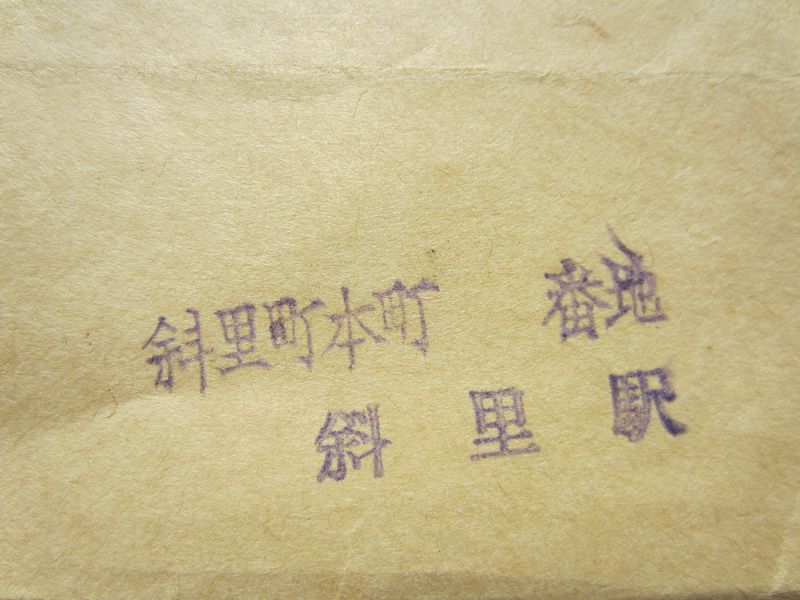 斜里町本町 番地
斜里駅